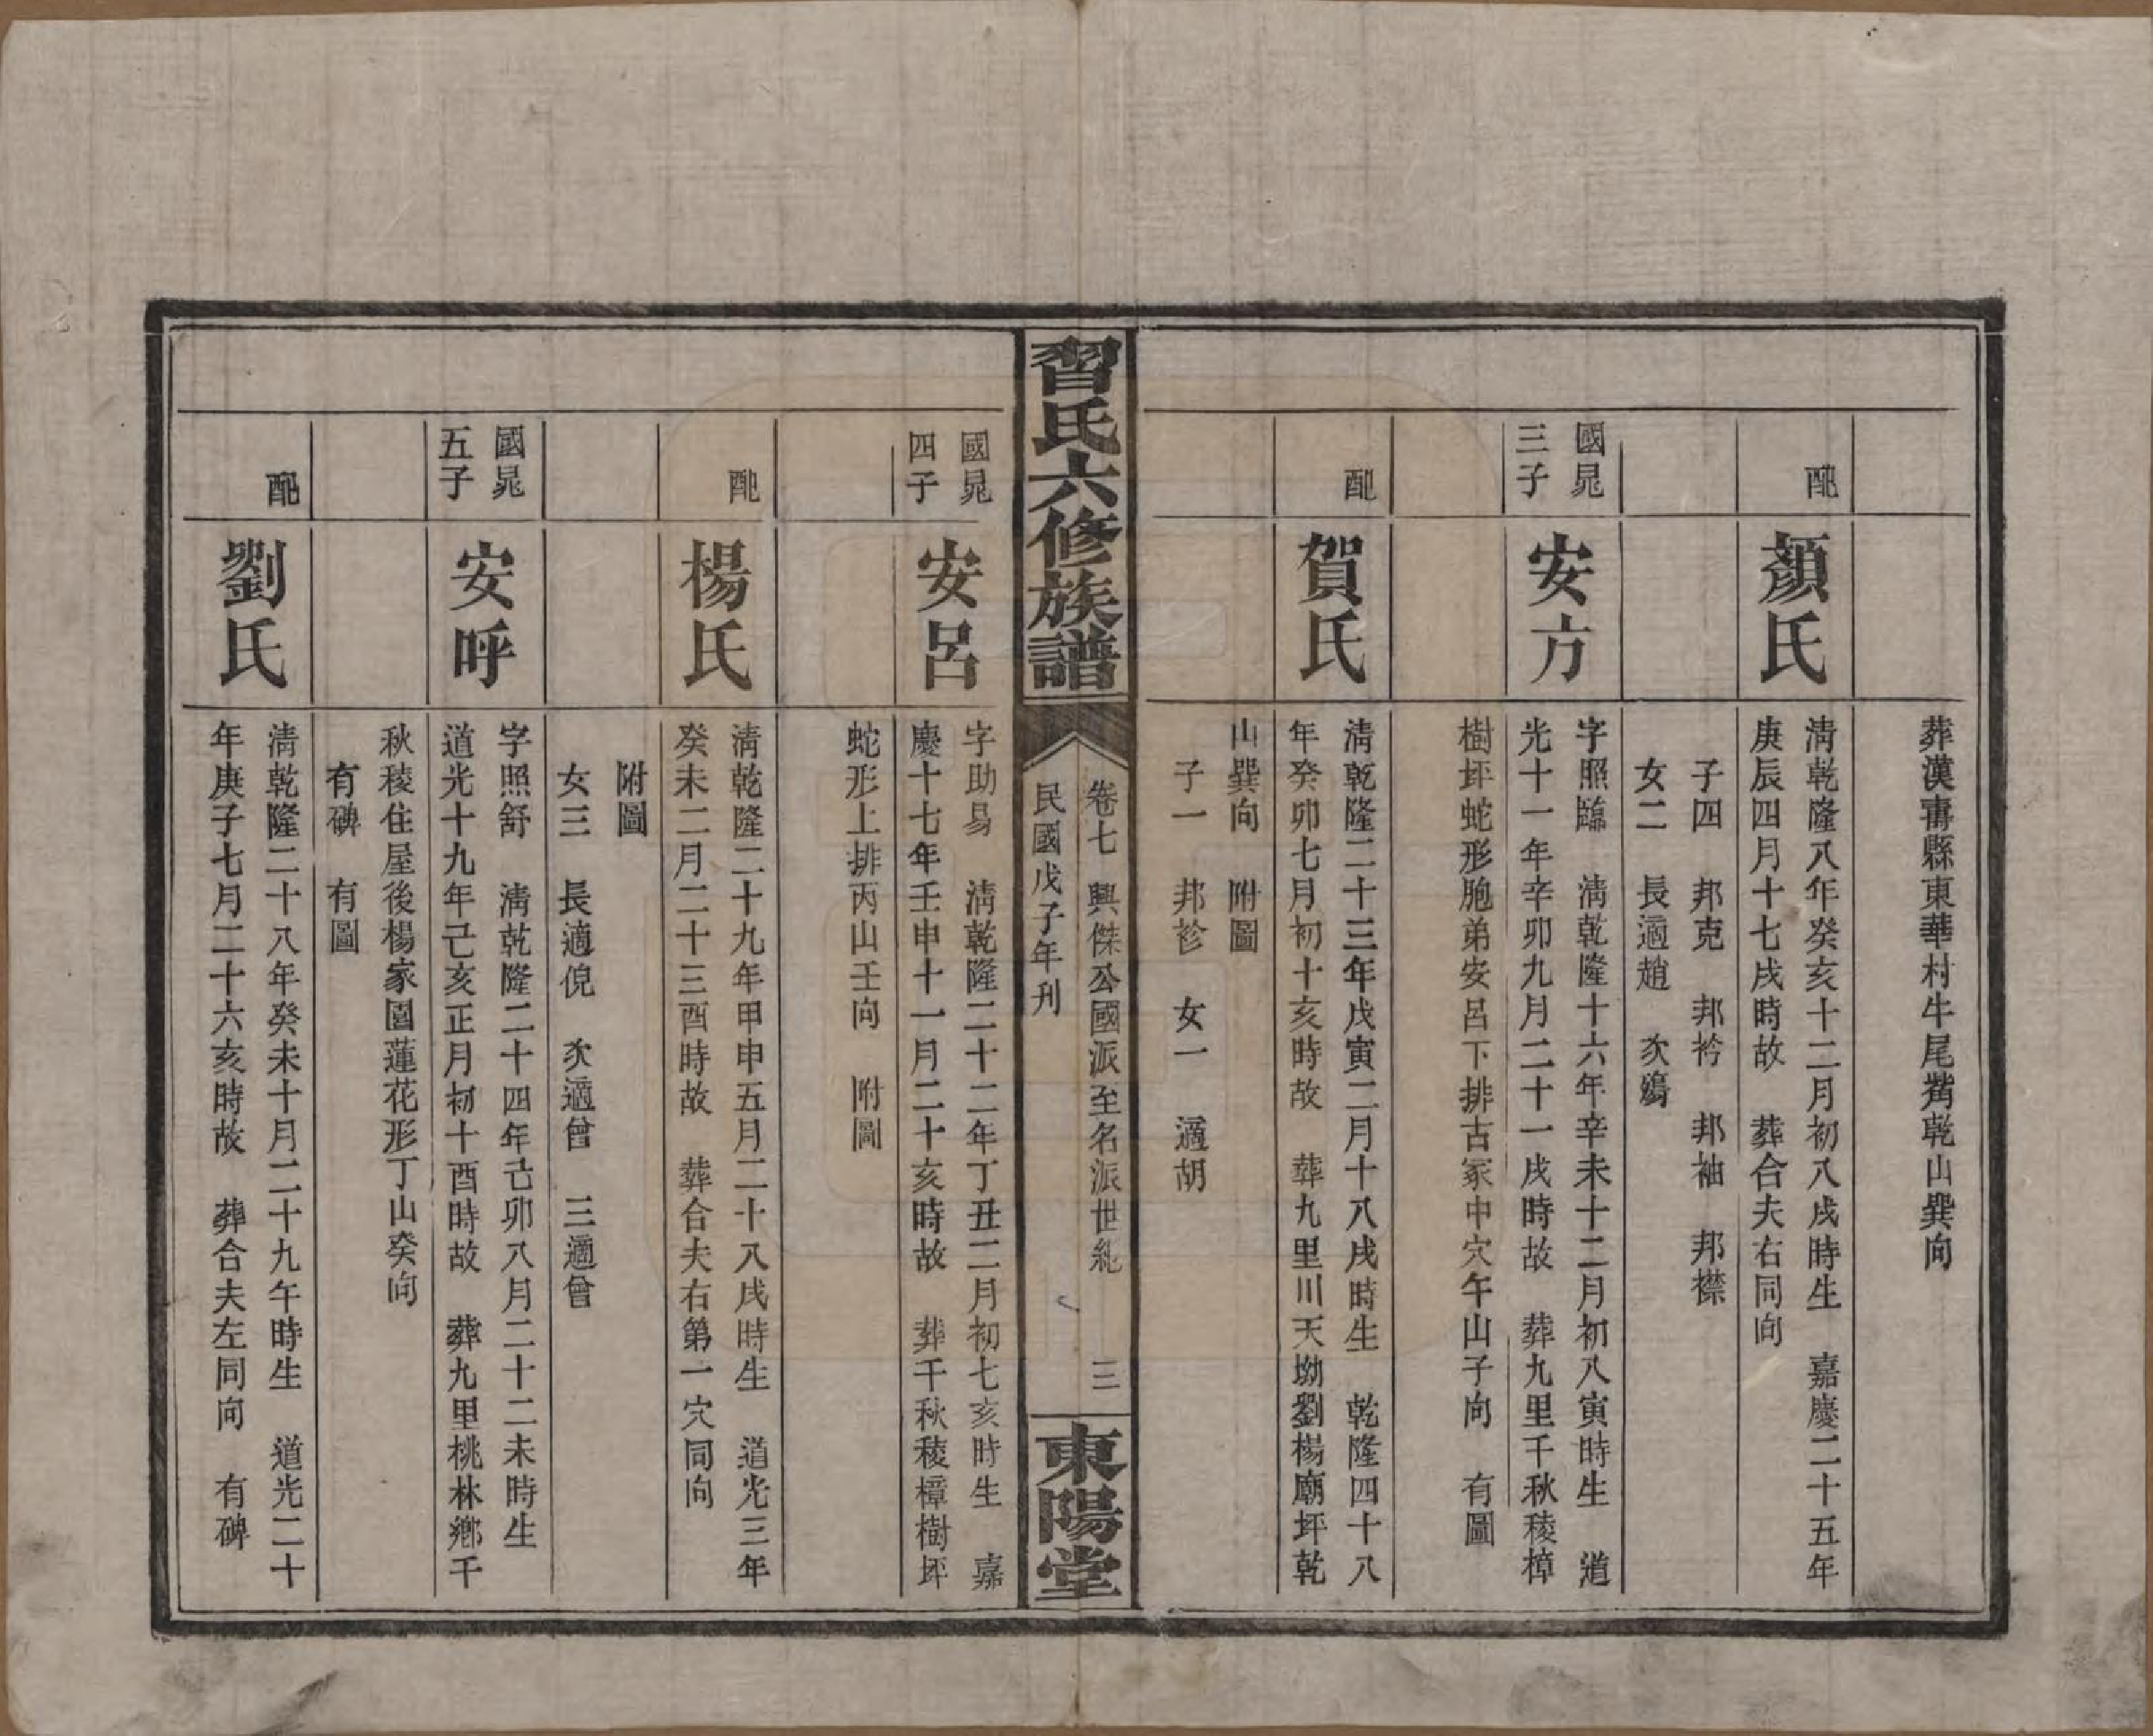 葬漢壽縣東華村牛尾觜乾山巽向
配
顏氏
淸乾隆八年癸亥十二月初八戌時生　嘉慶二十五年
庚辰四月十七戌時故　葬合夫右同向
子四　邦克　邦衿　邦袖　邦襟
女二　長適趙　次殤
國晃
三子
安方
字照臨　淸乾隆十六年辛未十二月初八寅時生　道
光十一年辛卯九月二十一戌時故　葬九里千秋稜樟
樹坪蛇形胞弟安呂下排古冢中穴午山子向　有圖
配
賀氏
淸乾隆二十三年戊寅二月十八戌時生　乾隆四十八
年癸卯七月初十亥時故　葬九里川天坳劉楊廟坪乾
山巽向　附圖
子一　邦袗　女一　適胡
習氏六修族譜
卷七　興傑公國派至名派世紀　三
民國戊子年刋
東陽堂
國晃
四子
安呂
字助易　淸乾隆二十二年丁丑二月初七亥時生　嘉
慶十七年壬申十一月二十亥時故　葬千秋稜樟樹坪
蛇形上排丙山壬向　附圖
配
楊氏
淸乾隆二十九年甲申五月二十八戌時生　道光三年
癸未二月二十三酉時故　葬合夫右第一穴同向
附圖
女三　長適倪　次適曾　三適曾
國晃
五子
安呼
字照舒　淸乾隆二十四年己卯八月二十二未時生
道光十九年己亥正月初十酉時故　葬九里桃林鄕千
秋稜住屋後楊家園蓮花形丁山癸向
有碑　有圖
配
劉氏
淸乾隆二十八年癸未十月二十九午時生　道光二十
年庚子七月二十六亥時故　葬合夫左同向　有碑